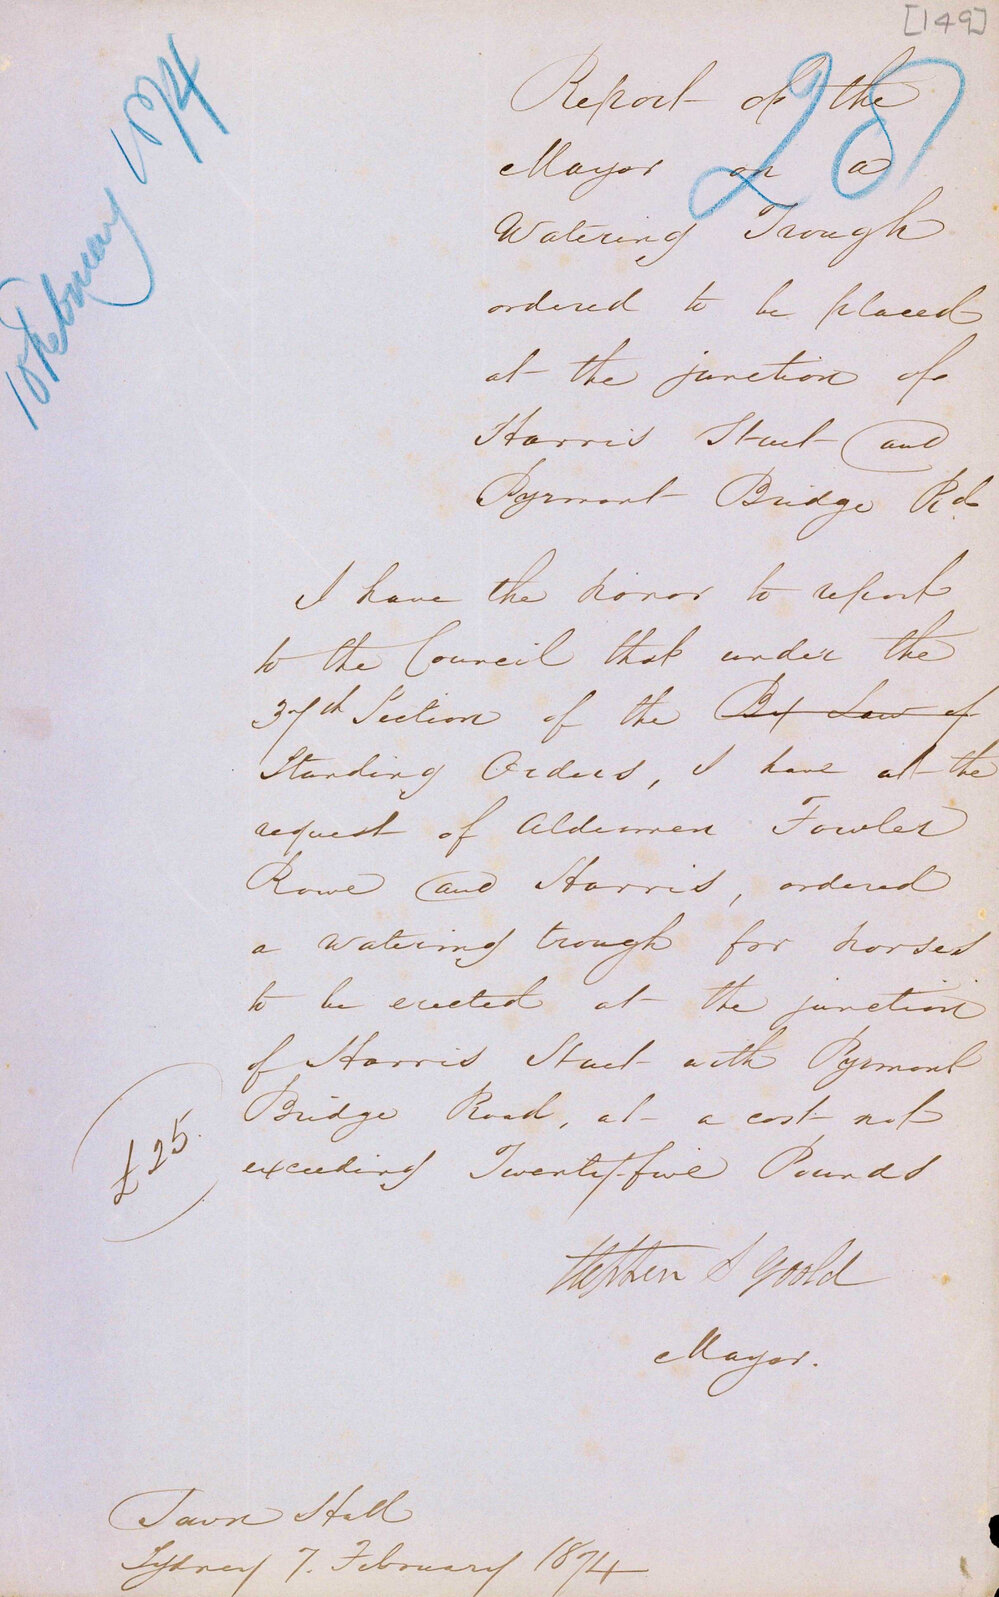 [149]
10 February 1874
28
Report of the
Mayor on a
Watering Trough
ordered to be placed
at the junction of
Harris Street and
Pyrmont Bridge Rd.
I have the honor to report
to the Council that under the
37th Section of the By Law of
Standing Orders, I have at the
request of Aldermen Fowler
Rowe and Harris, ordered
a watering trough for horses
to be erected at the junction
of Harris Street with Pyrmont
Bridge Road, at a cost not
£25.
exceeding Twenty-five Pounds
Stephen S Goold
Mayor.
Town Hall
Sydney 7. February 1874